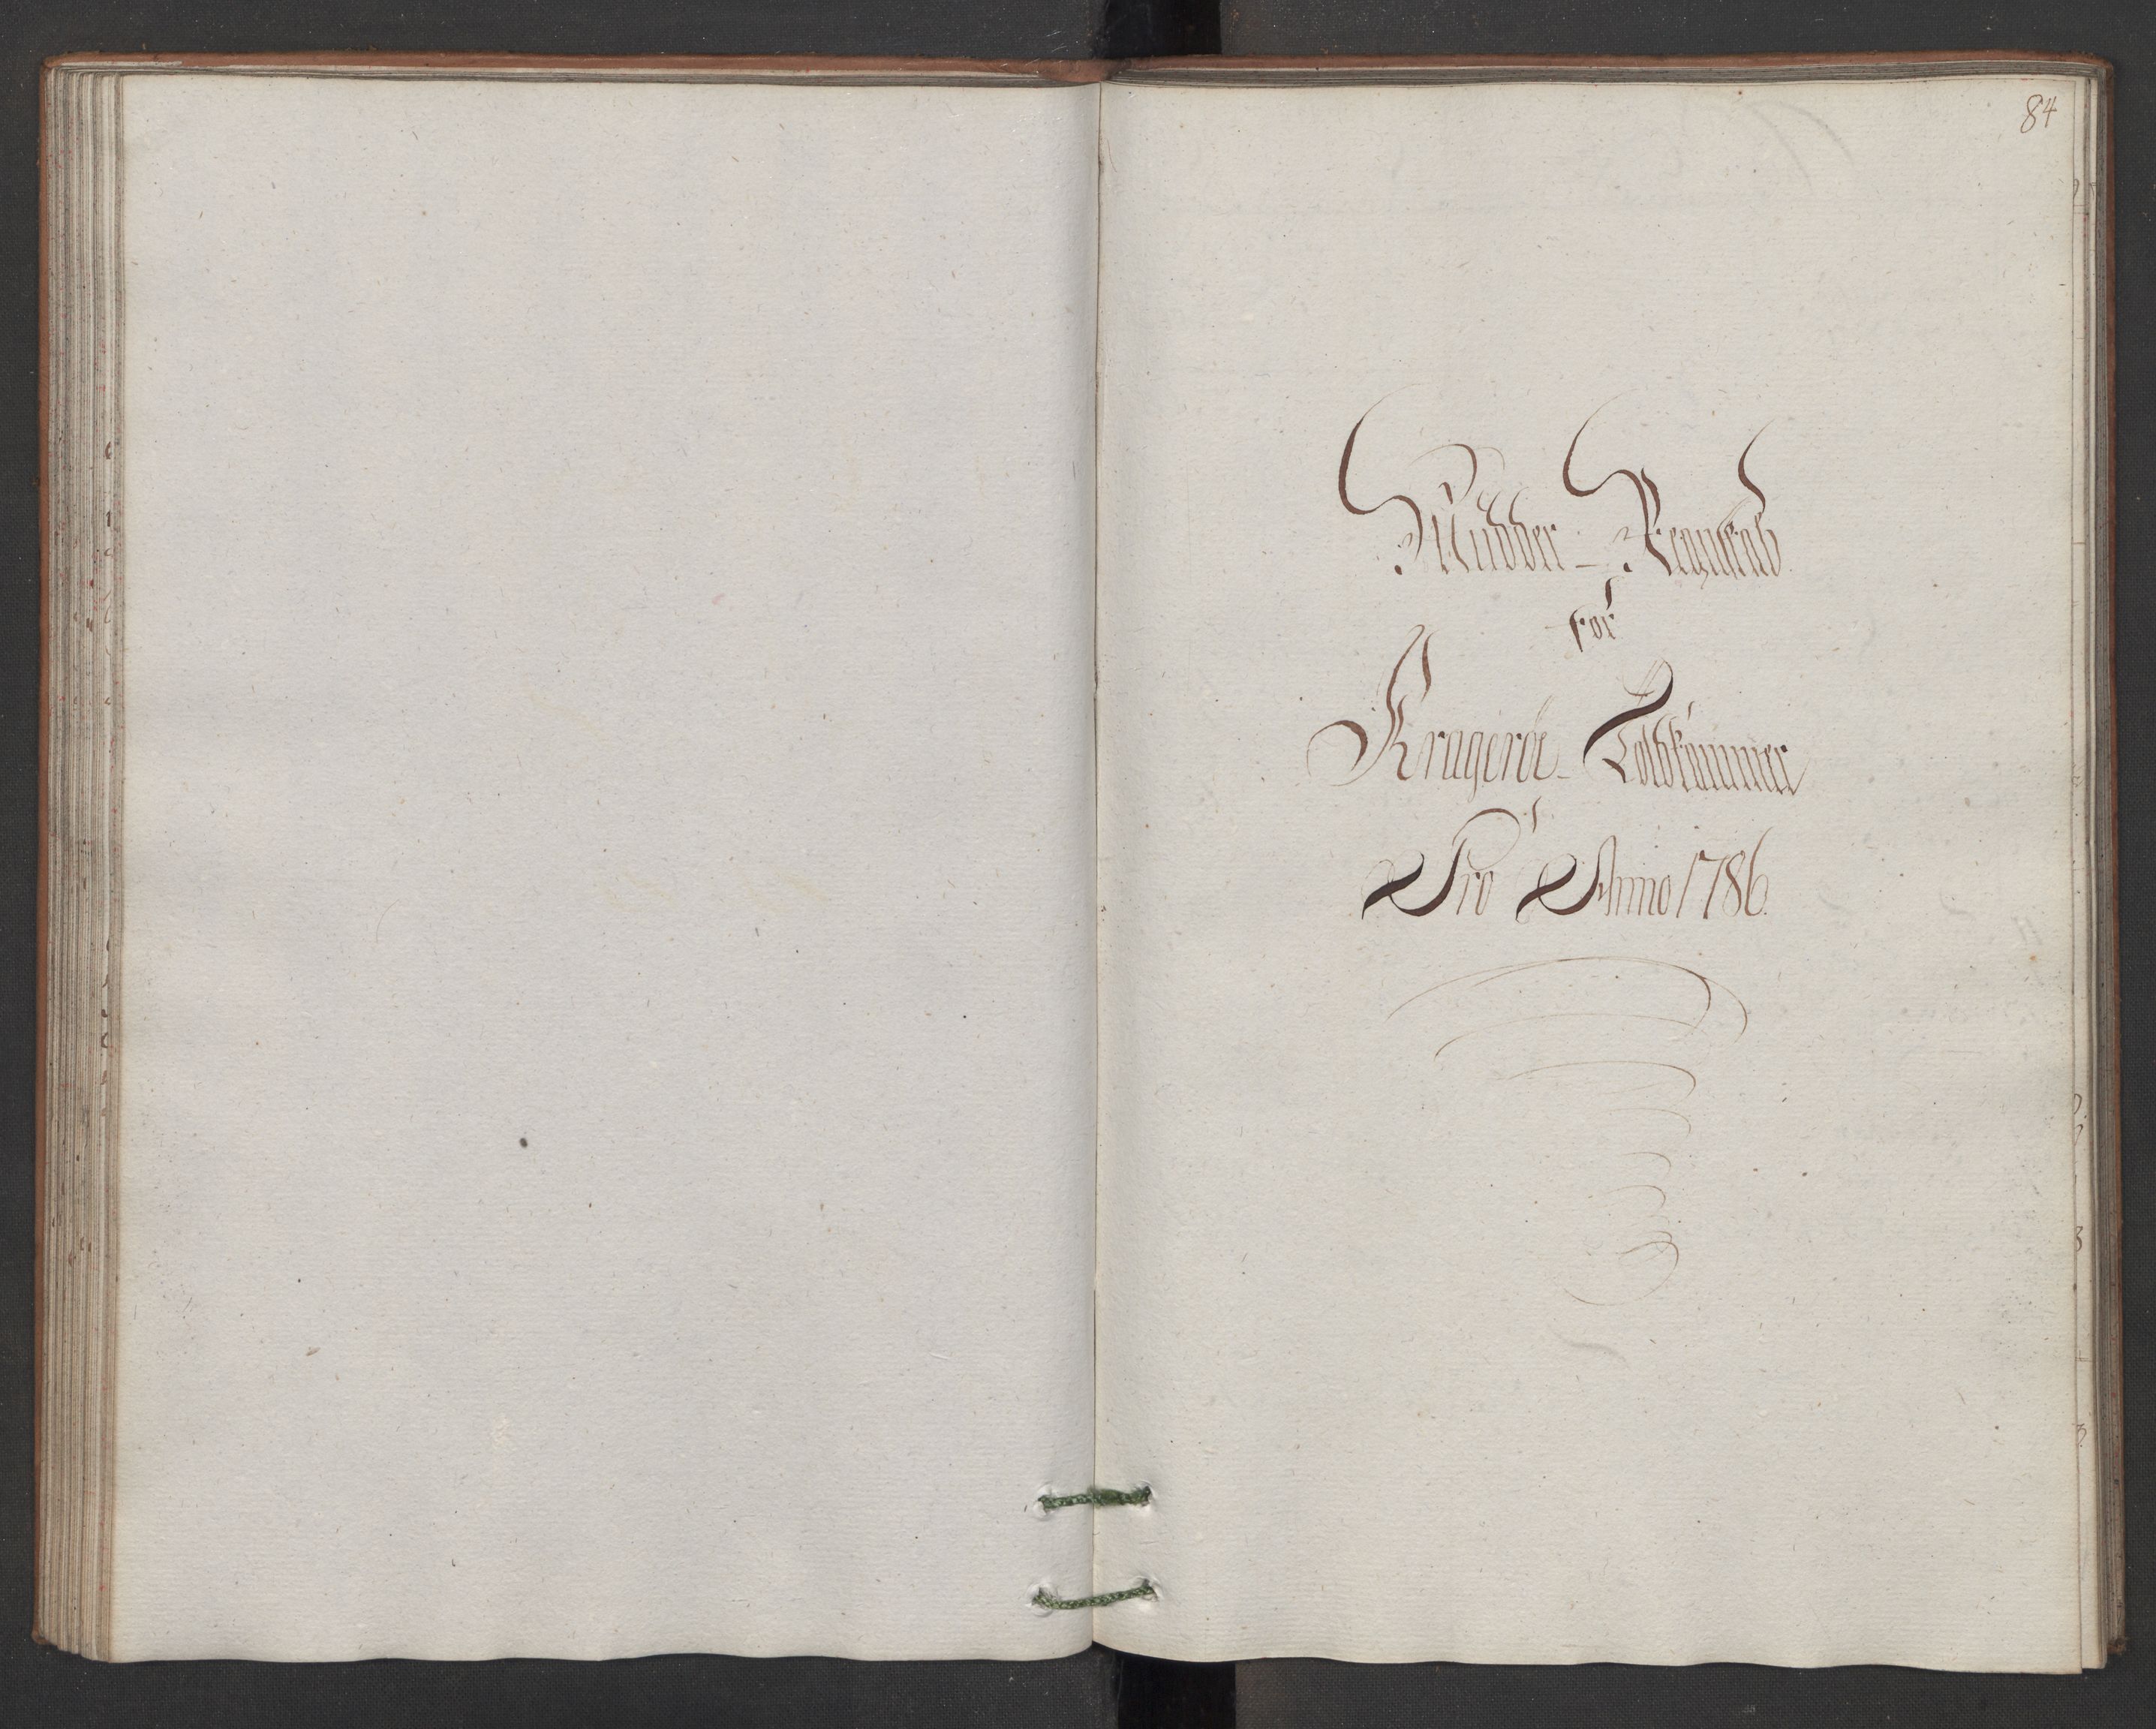 84
Mudder-Regnskab
for
Krageröe Toldkammer
Pro Anno 1786.